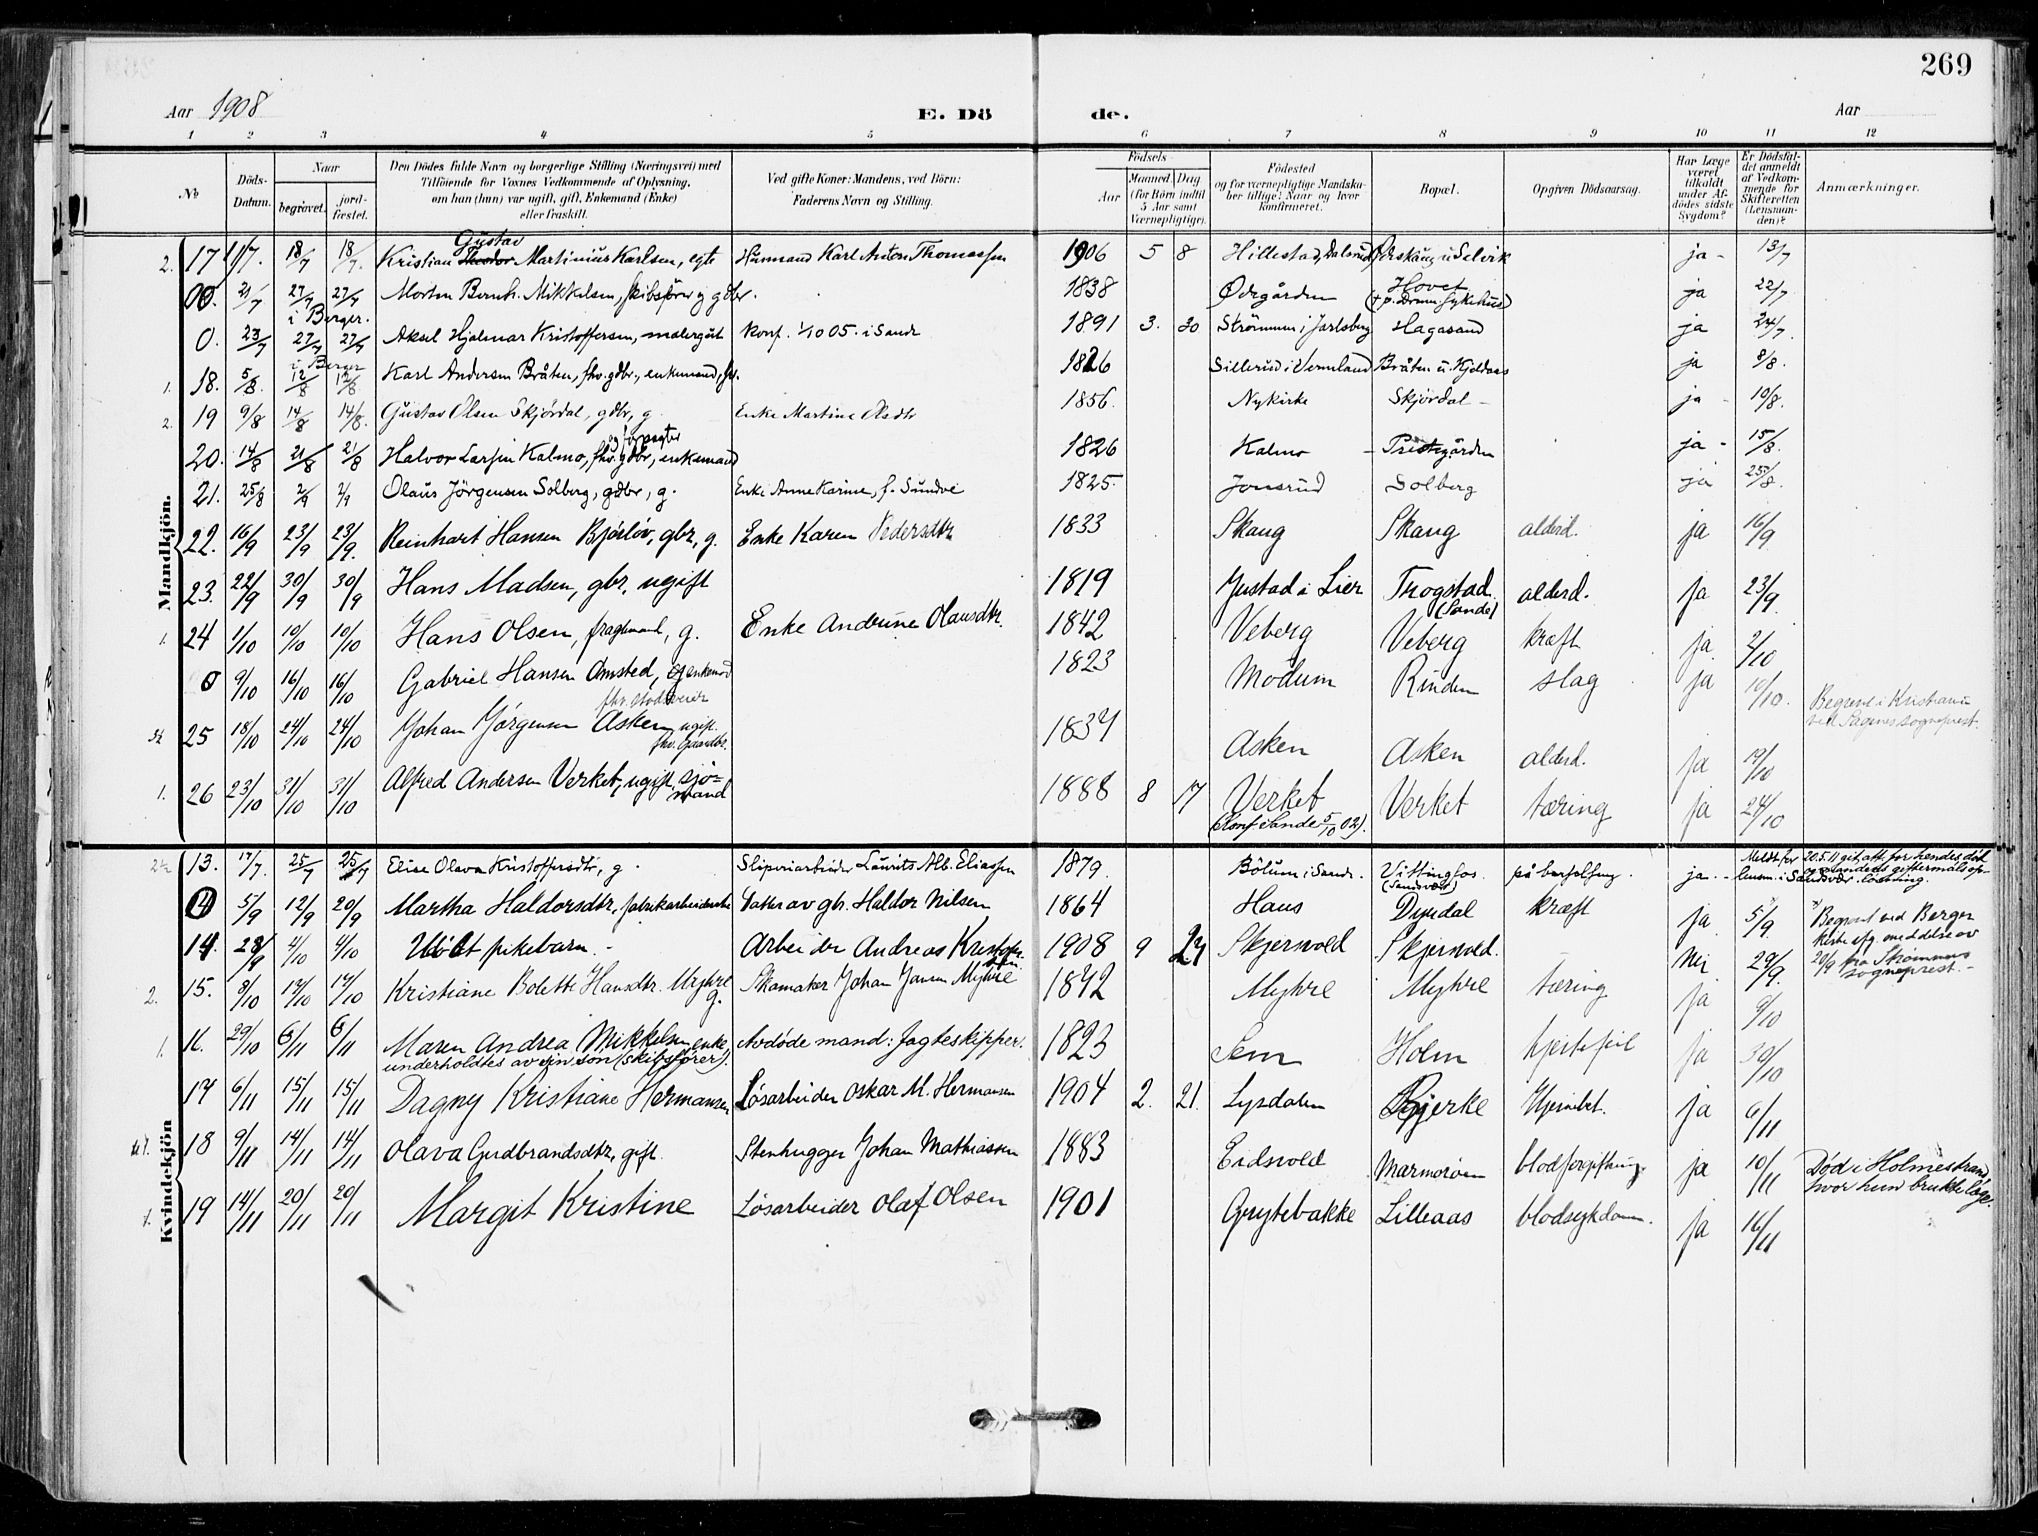 269
Aar 1908
E. Dö de.
Aar
1 2 3 4 5 6 7 8 9 10 11 12
No
Döds-Datum.
Naar
begravet.
jord-fæstet.
Den Dödes fulde Navn og borgerlige Stilling (Næringsvei) med
Tilföiende for Voxnes Vedkommende af Oplysning,
om han (hun) var ugift, gift, Enkemand (Enke)
eller fraskilt.
Ved gifte Koner: Mandens, ved Börn:
Faderens Navn og Stilling.
Födsels-
Aar
Maaned. Dag
(for Börn indtil
5 Aar samt
Værnepligtige).
Födested
og for værnepligtige Mandska-
ber tillige: Naar og hvor
konfirmeret.
Bopæl.
Opgiven Dödsaarsag.
Har Læge
været
tilkaldt
under Af-
dödes sidste
Sygdom?
Er Dödsfal-
det anmeldt
af Vedkom-
mende for
Skifteretten
(Lensman-
den)?
Anmærkninger.
Mandkjön.
Gustav
2. 17 11/7. 18/7 18/7. Kristian Martinius Karlsen, egte Husmand Karl Anton Thomassen 1906 5 8 Hillestad, Ørskaug i Selvik ja - 13/7
00. 21/7 27/7 27/7 Morten Bernh. Mikkelsen, skibsfører g gdbr. 1838 Ødegården Hovet ja 22/7
i Berger.
0. 23/7 27/7 27/7 Aksel Hjalmar Kristoffersen, malergut Konf. 1/10 05. i Sande 1891 3. 30 Strømmen i Jarlsberg Hagasand ja 24/7.
i Berger
1. 18. 5/8. 12/8 12/8 Karl Andersen Bråten, fhv. gdbr., enkemand, 1826 Sillerud i Vermland Bråten u. Kjeldaas ja 8/8.
2. 19 9/8 14/8 14/8. Gustav Olsen Skjørdal, gdbr, g. Enke Martine Olsdtr 1856. Nykirke Skjørdal - ja - 10/8.
og forpagter
20. 14/8 21/8 21/8 Halvor Larsen Kalmo, fhv. gdbr, enkemand 1826 Kalmo - Prestegården ja - 15/8.
21. 25/8 2/9 2/9 Olaus Jörgensen Solberg, gdbr, g. Enke Anne Karine, f. Sundve 1825. Jonsrud Solberg ja 25/8.
22. 16/9 23/9 23/9. Reinhart Hansen Bjørløv, gbr, g. Enke Karen Pedersdtr 1833 Skaug Skaug alderd. ja 16/9
23. 22/9 30/9 30/9 Hans Madsen, gbr, ugift 1819 Justad i Lier Trogstad (Sande) alderd. ja 23/9.
1. 24 1/10 10/10 10/10 Hans Olsen, g. Enke Andrine Olausdtr. 1842 Veberg Veberg kræft ja 2/10
0 9/10 16/10 16/10 Gabriel Hansen Omsted, enkemd 1823 Modum Rinden slag ja 10/10. Begravet i Kristiania
ved Sagenes sogneprest.
25 18/10 24/10 24/10 Johan Jørgensen Asken ugift. fhv. Gaardbr. 1834 Asken Asken alderd. ja 19/10
1. 26 23/10 31/10 31/10 Alfred Andersen Verket, ugift, sjø-
mand 1888 8 17 Verket Verket tæring ja 24/10
(Konf i Sande 5/10 02).
Kvindekjön
13. 17/7. 25/7 25/7 Elise Olava Kristoffersdtr, g. Sliperiarbeider Laurits Alb. Eliassen 1879. Bölum i Sande. Vittingfos (Sandsvær) på barselseng. ja - Meldt for lensm. i Sandsvær. 20.5.11 git att. for hendes död
5/9 12/9 20/9 Martha Haldorsdtr, fabrikarbeiderske Datter av gbr. Haldor Nilsen 1864 Haus Dyrdal kræft ja 5/9 Begravet ved Berger
kirke efg. meddelse av
20/9 fra Strømmens
sogneprest. -
14. 28/9 4/10 4/10 Udöbt pikebarn - Arbeider Andreas Kristoffersen 1908 9 27 Skjersvold Skjersvold. Nei 29/9.
2. 15. 8/10 14/10 14/10 Kristiane Bolette Hansdtr. Myhre g. Skomaker Johan Jansen Myhre 1842 Myhre Myhre tæring ja 9/10
1. 16. 29/10 6/11 6/11 Maren Andrea Mikkelsen enke Avdøde mand: Jagteskipper. 1823 Sem Holm hjertefeil ja 30/10
underholdtes av sin son (skibsfører).
17 6/11 15/11 15/11 Dagny Kristiane Hermansen Løsarbeider Oskar M. Hermansen 1904 2. 21. Lysdalen Bjerke ja 6/11
18 9/11 14/11 14/11 Olava Gudbrandsdtr, gift Stenhugger Johan Mathiassen 1883 Eidsvold Marmorøen blodforgiftning ja 10/11 Død i Holmestrand
hvor hun brukte læge.
1. 19 14/11 20/11 20/11 Margit Kristine Løsarbeider Olaf Olsen 1901 Grytebakke Lilleaas blodsykdom. ja 16/11